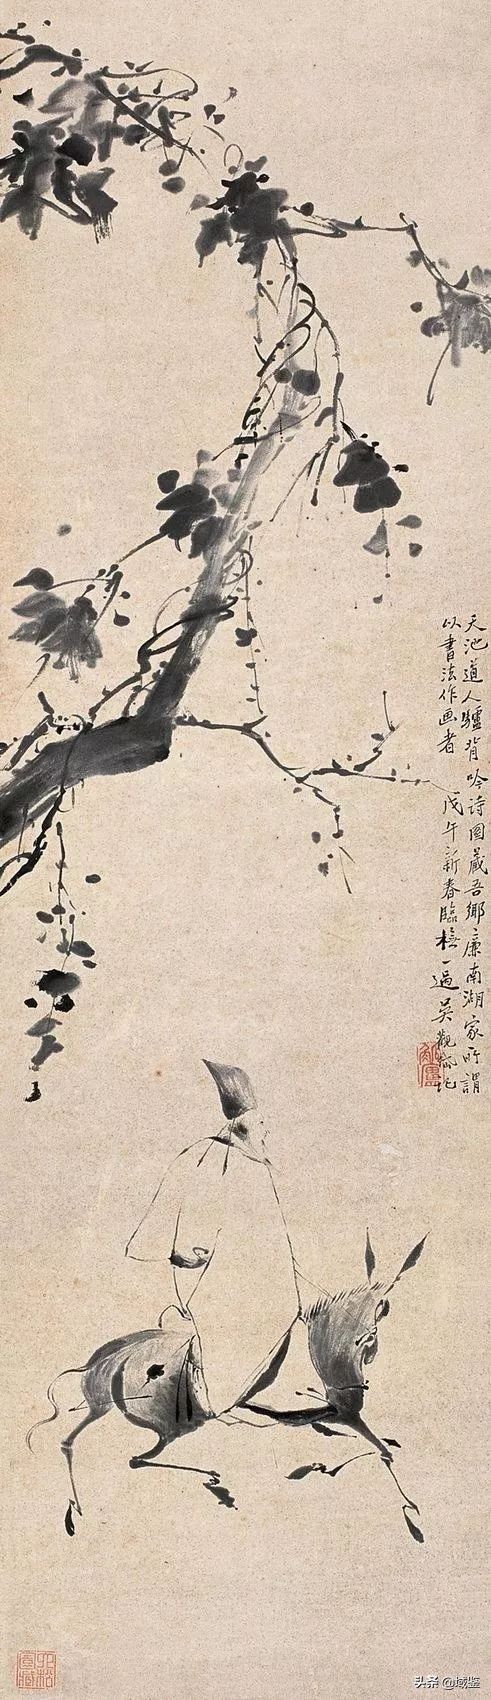 天池道人驢背吟诗圖藏吾鄉廉南湖家所謂
以書法作画者 戊午新春臨橅一過吳觀岱記
头条 @域鉴